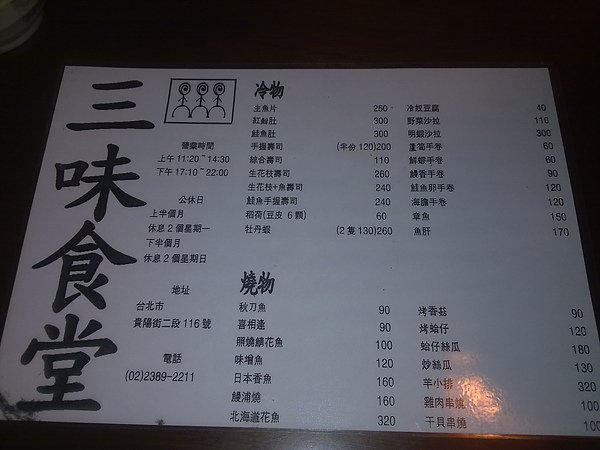 三味食堂
營業時間
上午 11:20~14:30
下午 17:10~22:00
公休日
上半個月
休息 2 個星期一
下半個月
休息 2 個星期日
地址
台北市
貴陽街二段 116 號
電話
(02)2389-2211
冷物
生魚片 250
紅魽肚 300
鮭魚肚 300
手握壽司 (半份 120)200
綜合壽司 110
生花枝壽司 260
生花枝+魚壽司 240
鮭魚手握壽司 240
稻荷(豆皮 6 顆) 60
牡丹蝦 (2 隻 130)260
冷奴豆腐 40
野菜沙拉 110
明蝦沙拉 300
蘆筍手卷 60
鮮蝦手卷 60
鰻香手卷 90
鮭魚卵手卷 120
海膽手卷 120
章魚 150
魚肝 170
燒物
秋刀魚 90
喜相逢 90
照燒鯖花魚 100
味增魚 120
日本香魚 160
鰻浦燒 160
北海道花魚 320
烤香菇 90
烤蛤仔 120
蛤仔絲瓜 180
炒絲瓜 130
羊小排 320
雞肉串燒 100
干貝串燒 100